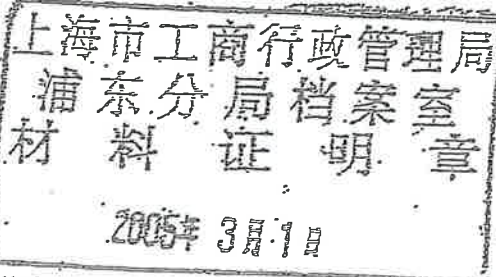 上海市工商行政管理局
浦东分局档案室
材料证明章
2005年3月1日